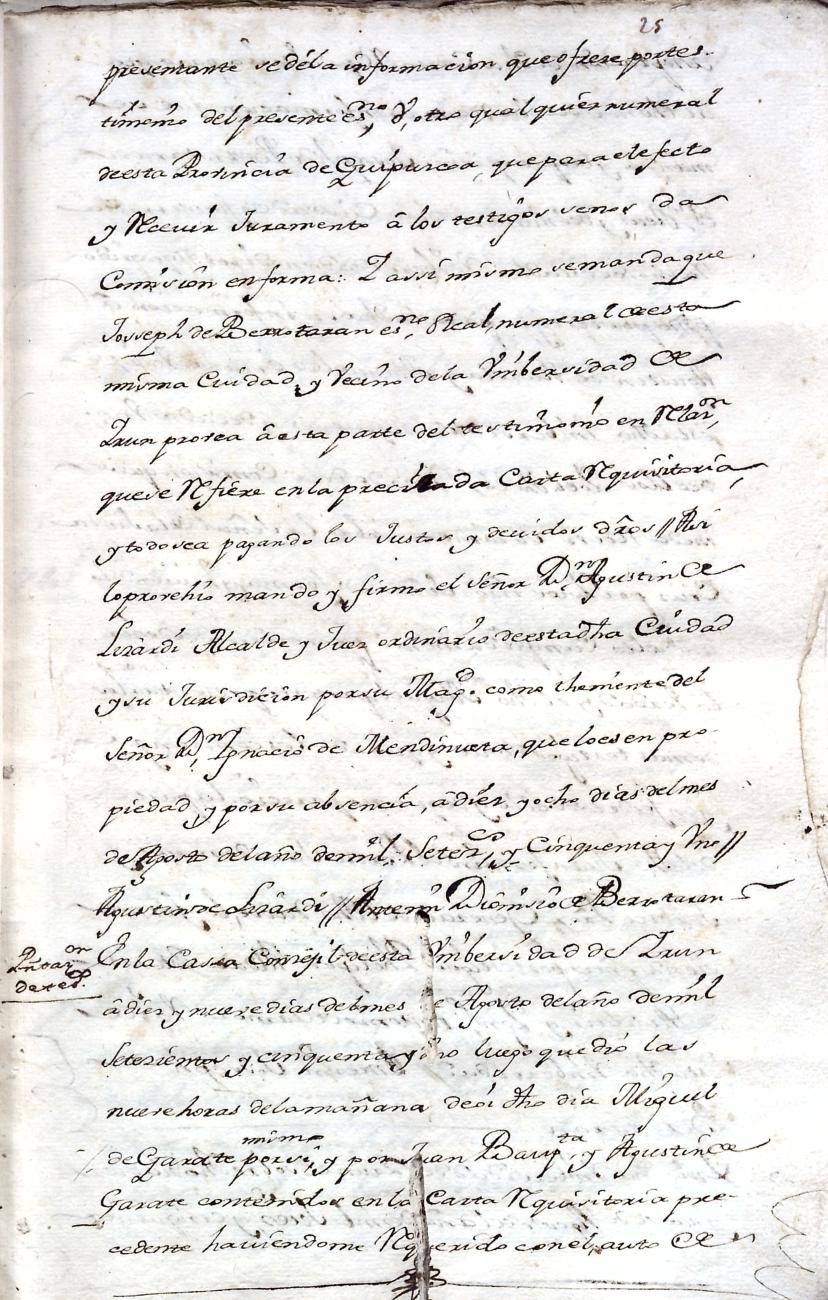 25
presentante se dé la informacion que ofrere por tes-
timonio del presente essno, V, otro qual quier numeral
de esta Provincia de Guipurcoa, que para el efecto
y Rcevir Juramento â los testigos senos da
Comision en forma: Y assi mismo se manda que
Josseph de Berrotaran esno, Real, numeral de esta
misma Ciudad, y Vecino de la Vnibersidad de
Yrun provea â esta parte del testimonio en Rlaon,
que se Rfiere en la precitada Carta Rquisitoria,
y todo sea pagando los Justos y devidos dros // Asi
lo provehio mando y firmo el Señor Dn Agustin de
Lirardi Alcalde y Juez ordinario de esta dha Ciudad
y su Jurisdicion por su Magd. como theniente del
Señor Dn Ignacio de Mendinueta, que lo es en pro-
piedad y por su absencia, a dier y ocho dias del mes
de Agosto del año de mil, Setezos, y Cinquenta y Vno //
Agustin de Lirardi // Antemi Dionisio de Berrotaran
on
de red.
En la Cassa Consejil, de esta Vnibersidad de Yrun
â dier y nueve dias del mes de Agosto del año de mil
Seterientos y cinquenta y Vno luego que dio las
nueve horas de la mañana de oi dho dia Miguel
mismo
de Garate por si, y por Juan Bapta, y Agustin de
Garate contenidos en la Carta Rquisitoria pre-
cedente haviendome Rquerido con el, auto de